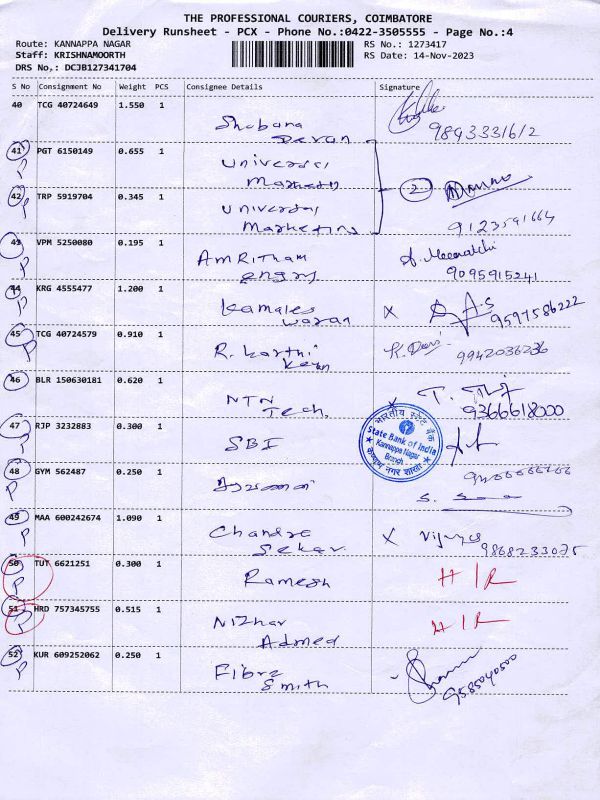 THE PROFESSIONAL COURIERS, COIMBATORE
Delivery Runsheet - PCX - Phone No.:0422-3505555 - Page No.:4
Route: KANNAPPA NAGAR RS No.: 1273417
Staff: KRISHNAMOORTH RS Date: 14-Nov-2023
DRS No,: DCJB127341704
S No Consignment No Weight PCS Consignee Details Signature
40 TCG 40724649 1.550 1
Shabana
9893331612
41 PGT 6150149 0.655 1
P Universal
Marketing
2
42 TRP 5919704 0.345 1
P Universal
Marketing 9123591664
43 VPM 5250080 0.195 1
P Amritham A. Meenatchi
9095915241
44 KRG 4555477 1.200 1
P Kamales X
waran 9597586222
45 TCG 40724579 0.910 1
P R. Karthi
Keyan 9942036236
46 BLR 150630181 0.620 1
NTN
Tech. 9366618000
47 RJP 3232883 0.300 1
P SBI
भारतीय स्टेट बैंक
State Bank of India
Kannappa Nagar
Branch
कण्णप्पा नगर शाखा
48 GYM 562487 0.250 1
P
49 MAA 600242674 1.090 1
P Chandra X
Sekar 9868233075
50 TUT 6621251 0.300 1
P Ramesh H/R
51 HRD 757345755 0.515 1
P Nizhar H/R
Admed
52 KUR 609252062 0.250 1
P Fibre
Smith 9585040500